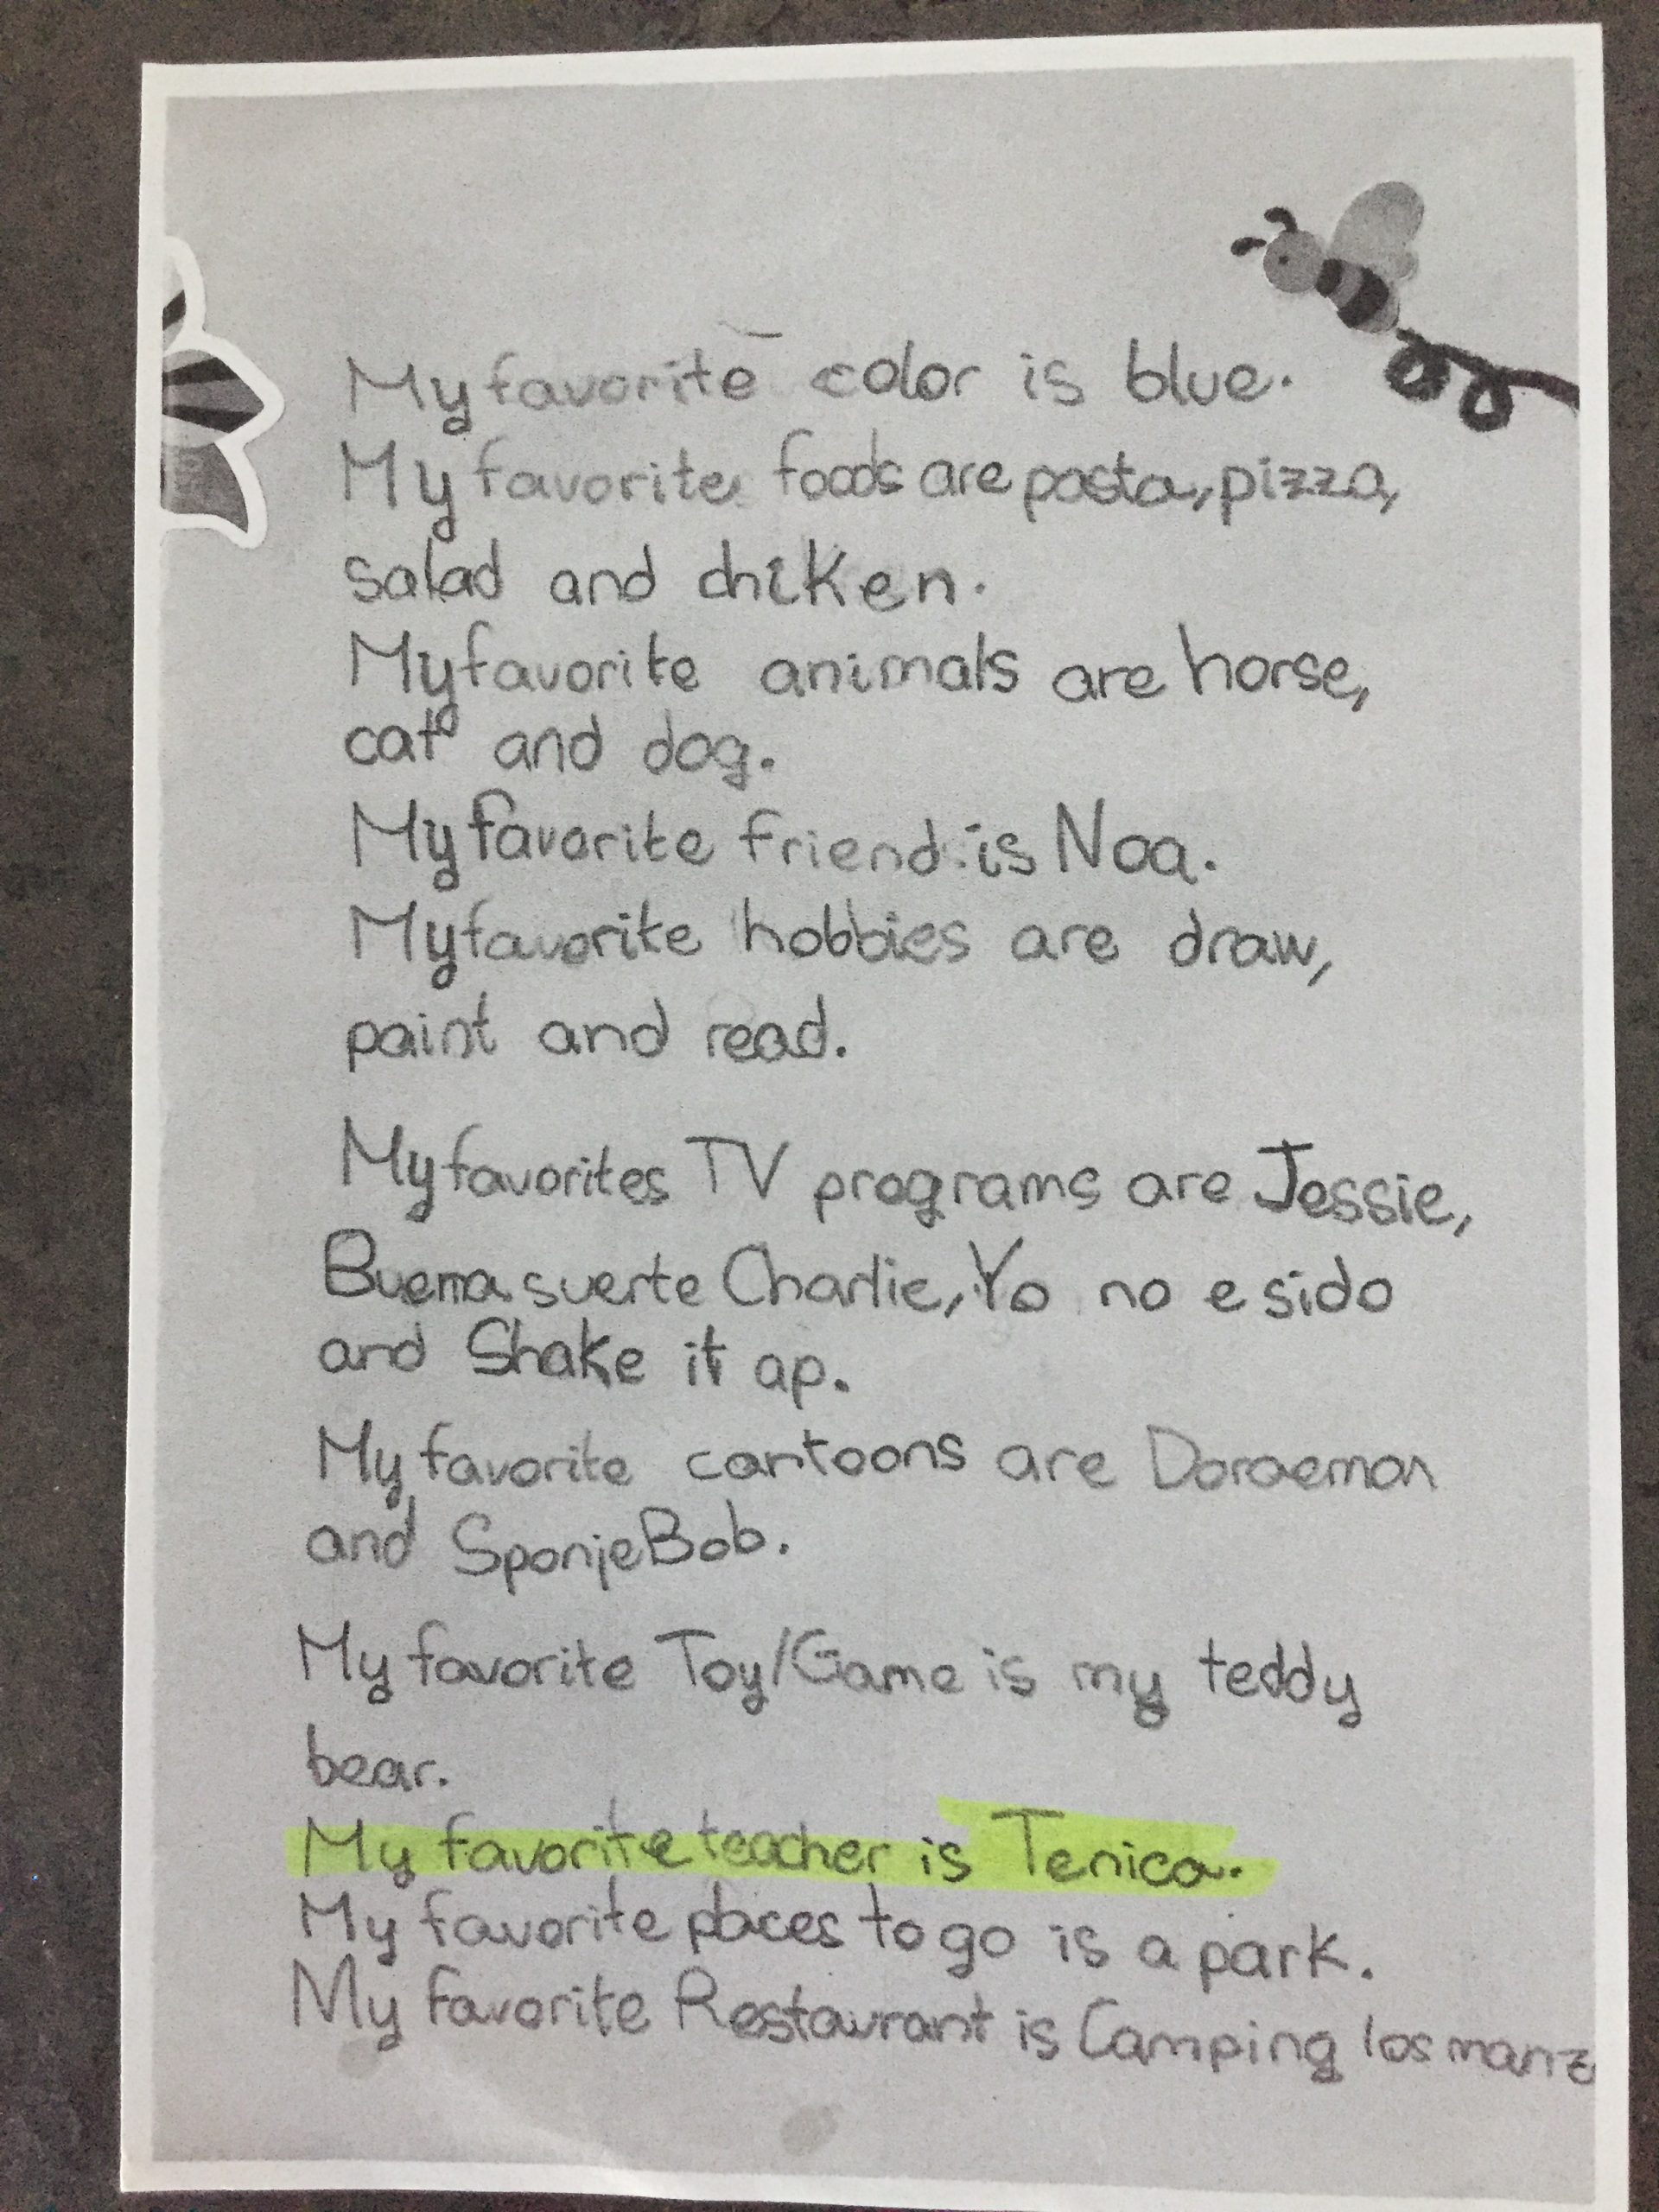 My favorite color is blue.
My favorite foods are pasta, pizza,
salad and chiken.
My favorite animals are horse,
cat and dog.
My favorite friend is Noa.
My favorite hobbies are draw,
paint and read.
My favorites TV programs are Jessie,
Buena suerte Charlie, Yo no e sido
and Shake it ap.
My favorite cartoons are Doraemon
and SponjeBob.
My favorite Toy/Game is my teddy
bear.
My favorite teacher is Tenica.
My favorite places to go is a park.
My favorite Restaurant is Camping los manz